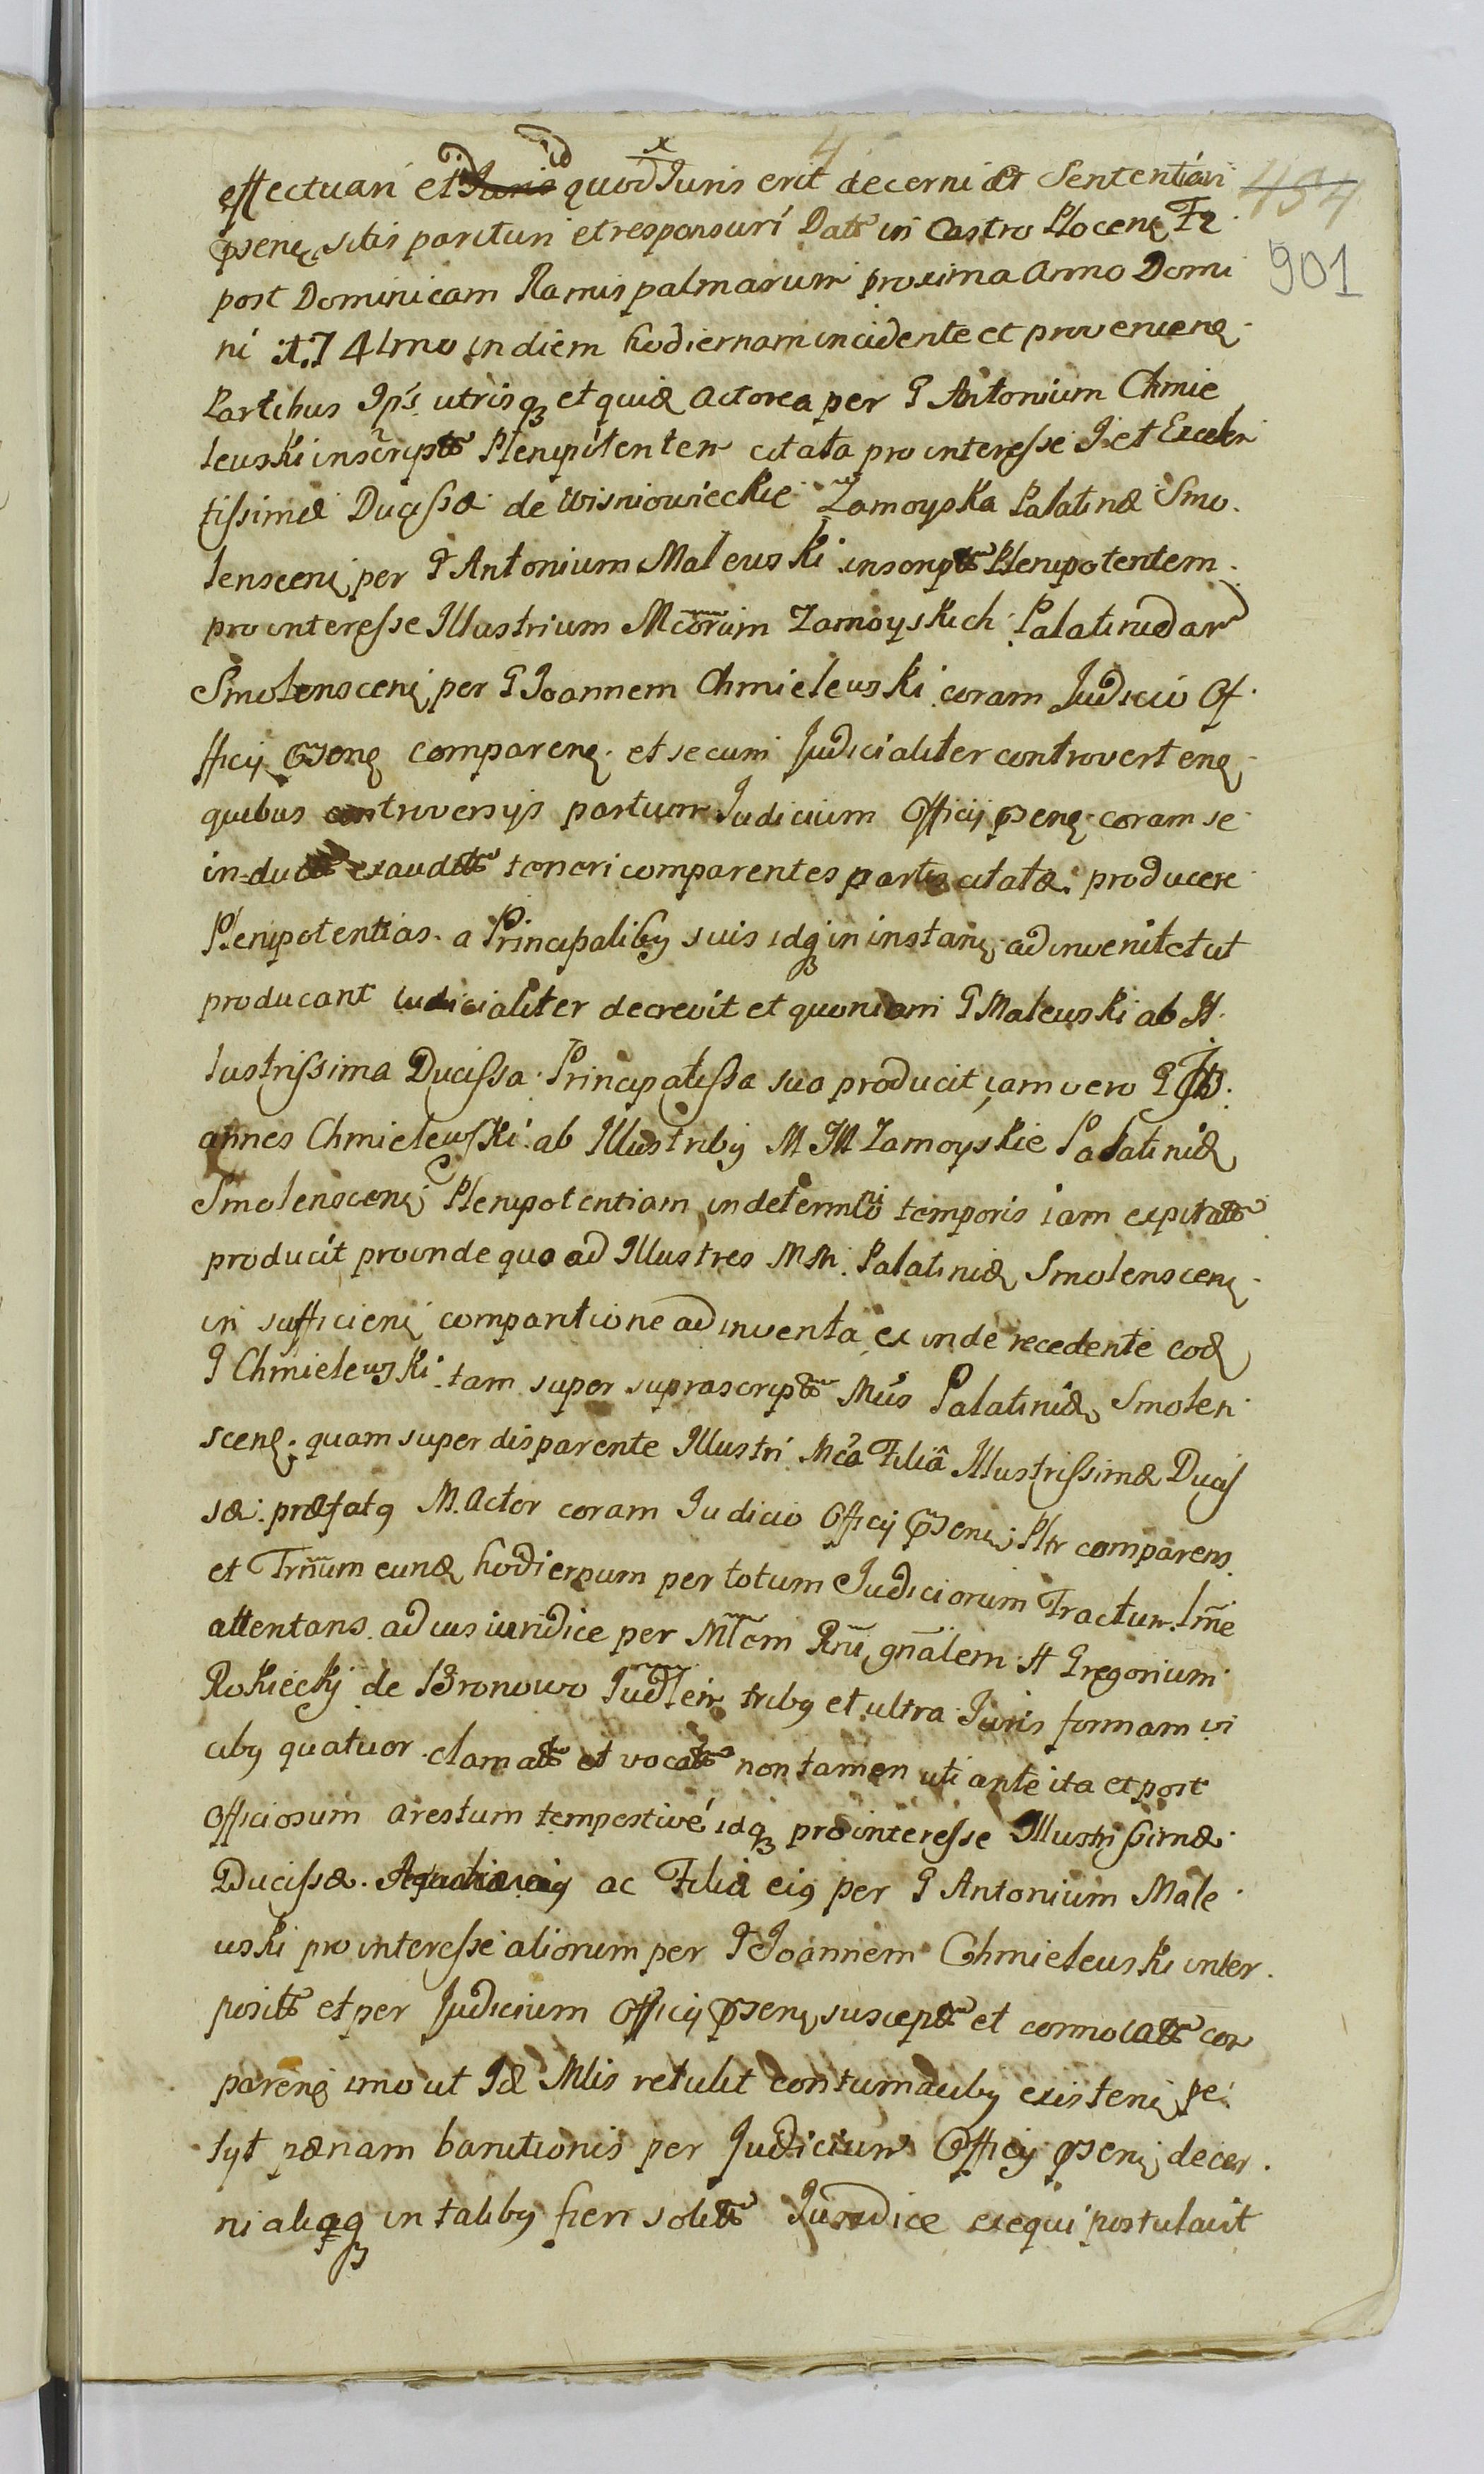 4
effectuari et id quod Juris erit decerni et Sententiari
494
pseng sitis parituri et responsuri Datt in Castro Plocens F2
901
post Dominicam Ramis palmarum proxima Anno Domi
ni 1741mo in diem hodiernam incidente et provenieng
Partibus Ips utrisq et quidem Actorea per G Antonium Chmie
lewski inscriptt Plenipotentem citata pro interesse J. et Excelen
tissimæ Ducissæ de Wisniowieckie Zamoyska Palatinæ Smo
lensceng per G Antonium Malewski inscriptt Plenipotentem
pro interesse Illustrium Mcorum Zamoyskich Palatinidar
Smolensceng per G Joannem Chmielewski coram Judicio Of
ficij pseng compareng et secum Judicialiter controverteng
quibus controversijs partium Judicium Officij pseng coram se
in-ductt exauditt teneri comparentes partis citatæ producere
Plenipotentias a Principalibg suis idq in instang adinvenit et ut
producant iudicialiter decrevit et quoniam G Malewski ab Il
lustrissima Ducissa Principalissa sua producit iam vero G Jo
annes Chmielewski ab Illustribg M M Zamoyskie Palatinid
Smolensceng Plenipotentiam indetermni temporis iam expiratt
producit proinde quo ad Illustres MM Palatinid Smolensceng
in sufficieng comparitione adinventa ex inde recedente eod
G Chmielewski tam super suprascriptt Mcis Palatinid Smolen
sceng quam super disparente Illustri Mca Filia Illustrissimæ Ducis
sæ præfatg M. Actor coram Judicio Officij pseng Pltr comparens
et Trnum eund hodiernum per totum Judiciorum Tractum lme
attentans ad ius iuridice per Mlem Rni gnalem H Gregorium
Rokicckj de Bronowo Judlem tribg et ultra Juris formam vi
cibg quatuor clamatt et vocatt non tamen uti ante ita et post
Officiosum arestum tempestive idq pro interesse Illustrissimæ
Ducissæ ac Filiæ eig per G Antonium Male
wski pro interesse aliorum per G Joannem Chmielewski inter
positt et per Judicium Officij pseng susceptt et connotatt com
pareng imo ut Id Mlis retulit contumacibg existeng pe
tyt pænam banitionis per Judicium Officij pseng decer
ni aliaqq in talibg fieri solitt Juridice exequi postulavit